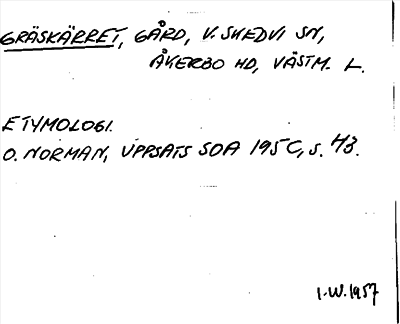 GRÄSKÄRRET, GÅRD, V. SKEDVI SN,
ÅKERBO HD, VÄSTM. L.
ETYMOLOGI.
O. NORMAN, UPPSATS SOA 195 C, S. 43.
I.W. 1957